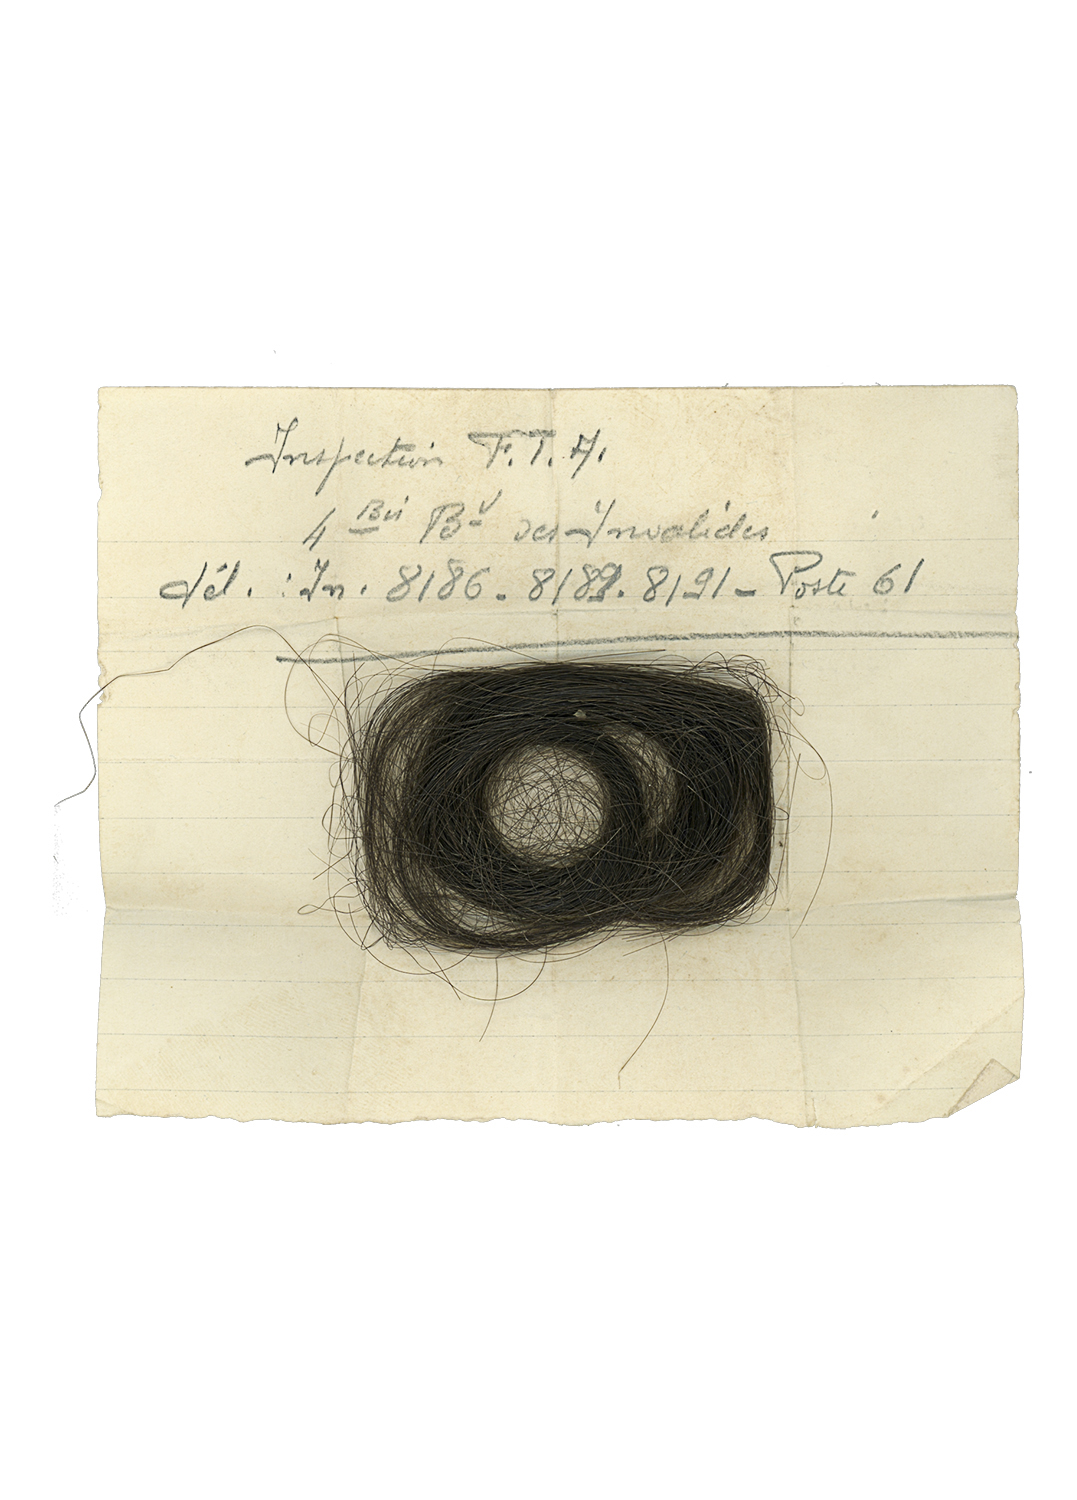 Inspection F.T.A.
4 Bis Bd des Invalides
tél. : In. 8186 - 8189. 8191 - Poste 61